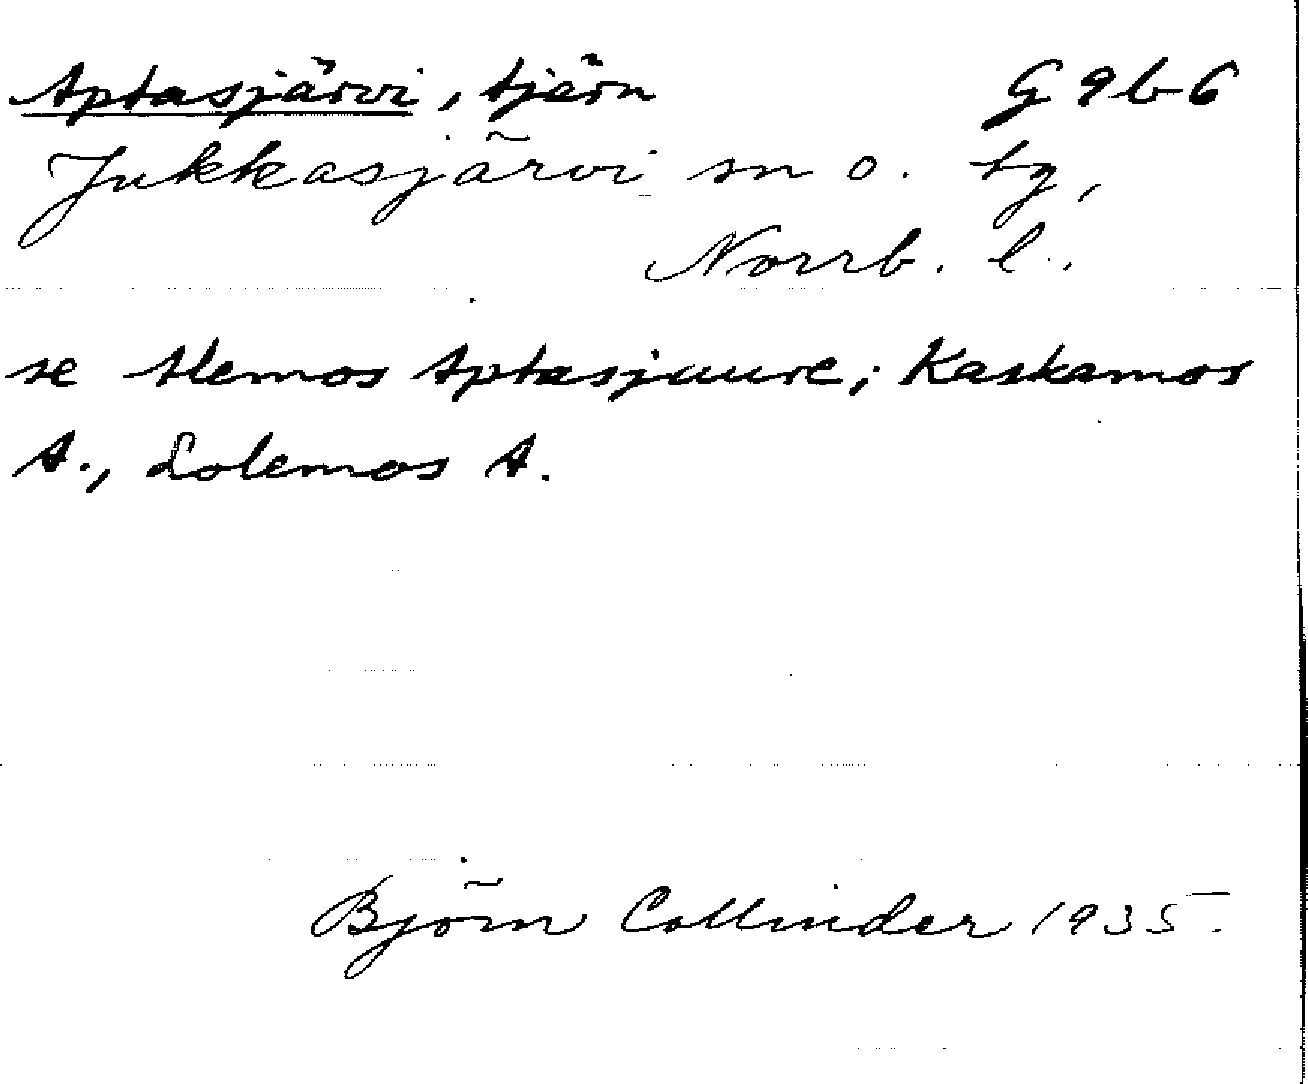 Aptasjärvi, tjärn G 9 b 6
Jukkasjärvi sn o. tg,
Norrb. l.
se Alemos Aptasjaure; Kaskamos
A., Lolemos A.
Björn Collinder 1935.